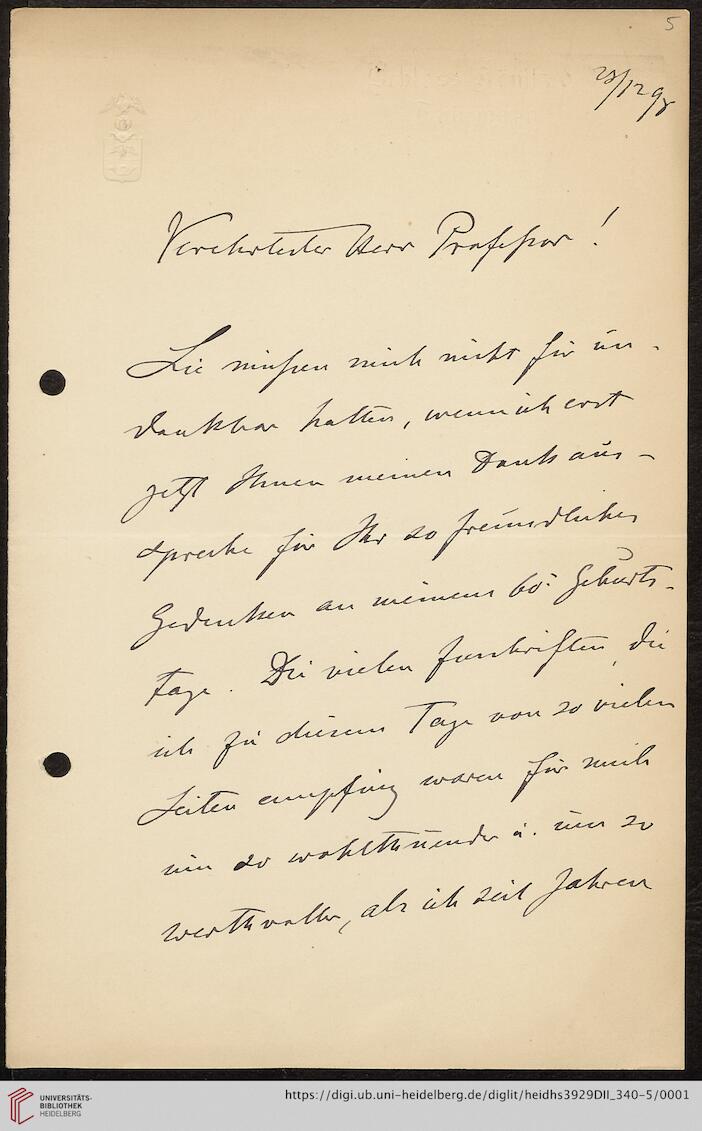 5
23/12 98
Verehrtester Herr Professor!
Sie müssen mich nicht für un-
dankbar halten, wenn ich erst
jetzt Ihnen meinen Dank aus-
spreche für Ihr so freundliches
Gedenken an meinem 60. Geburts-
tage. Die vielen Zuschriften, die
ich zu diesem Tage von so vielen
Seiten empfing waren für mich
um so wohlthuender u. um so
werthvoller, als ich seit Jahren
UNIVERSITÄTS-
BIBLIOTHEK
HEIDELBERG
https://digi.ub.uni-heidelberg.de/diglit/heidhs3929DII_340-5/0001